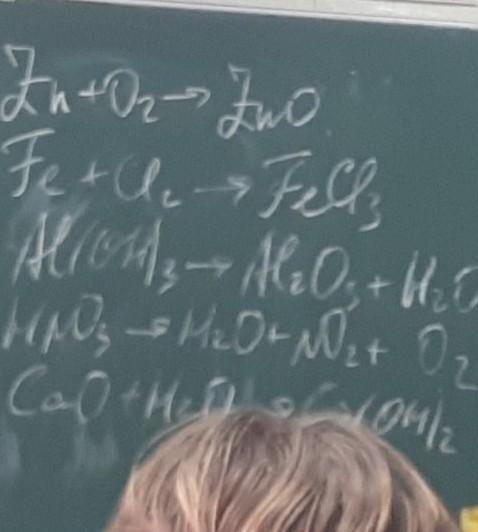 Zn + O₂ → ZnO
Fe + Cl₂ → FeCl₃
Al(OH)₃ → Al₂O₃ + H₂O
HNO₃ → H₂O + NO₂ + O₂
CaO + H₂O → Ca(OH)₂